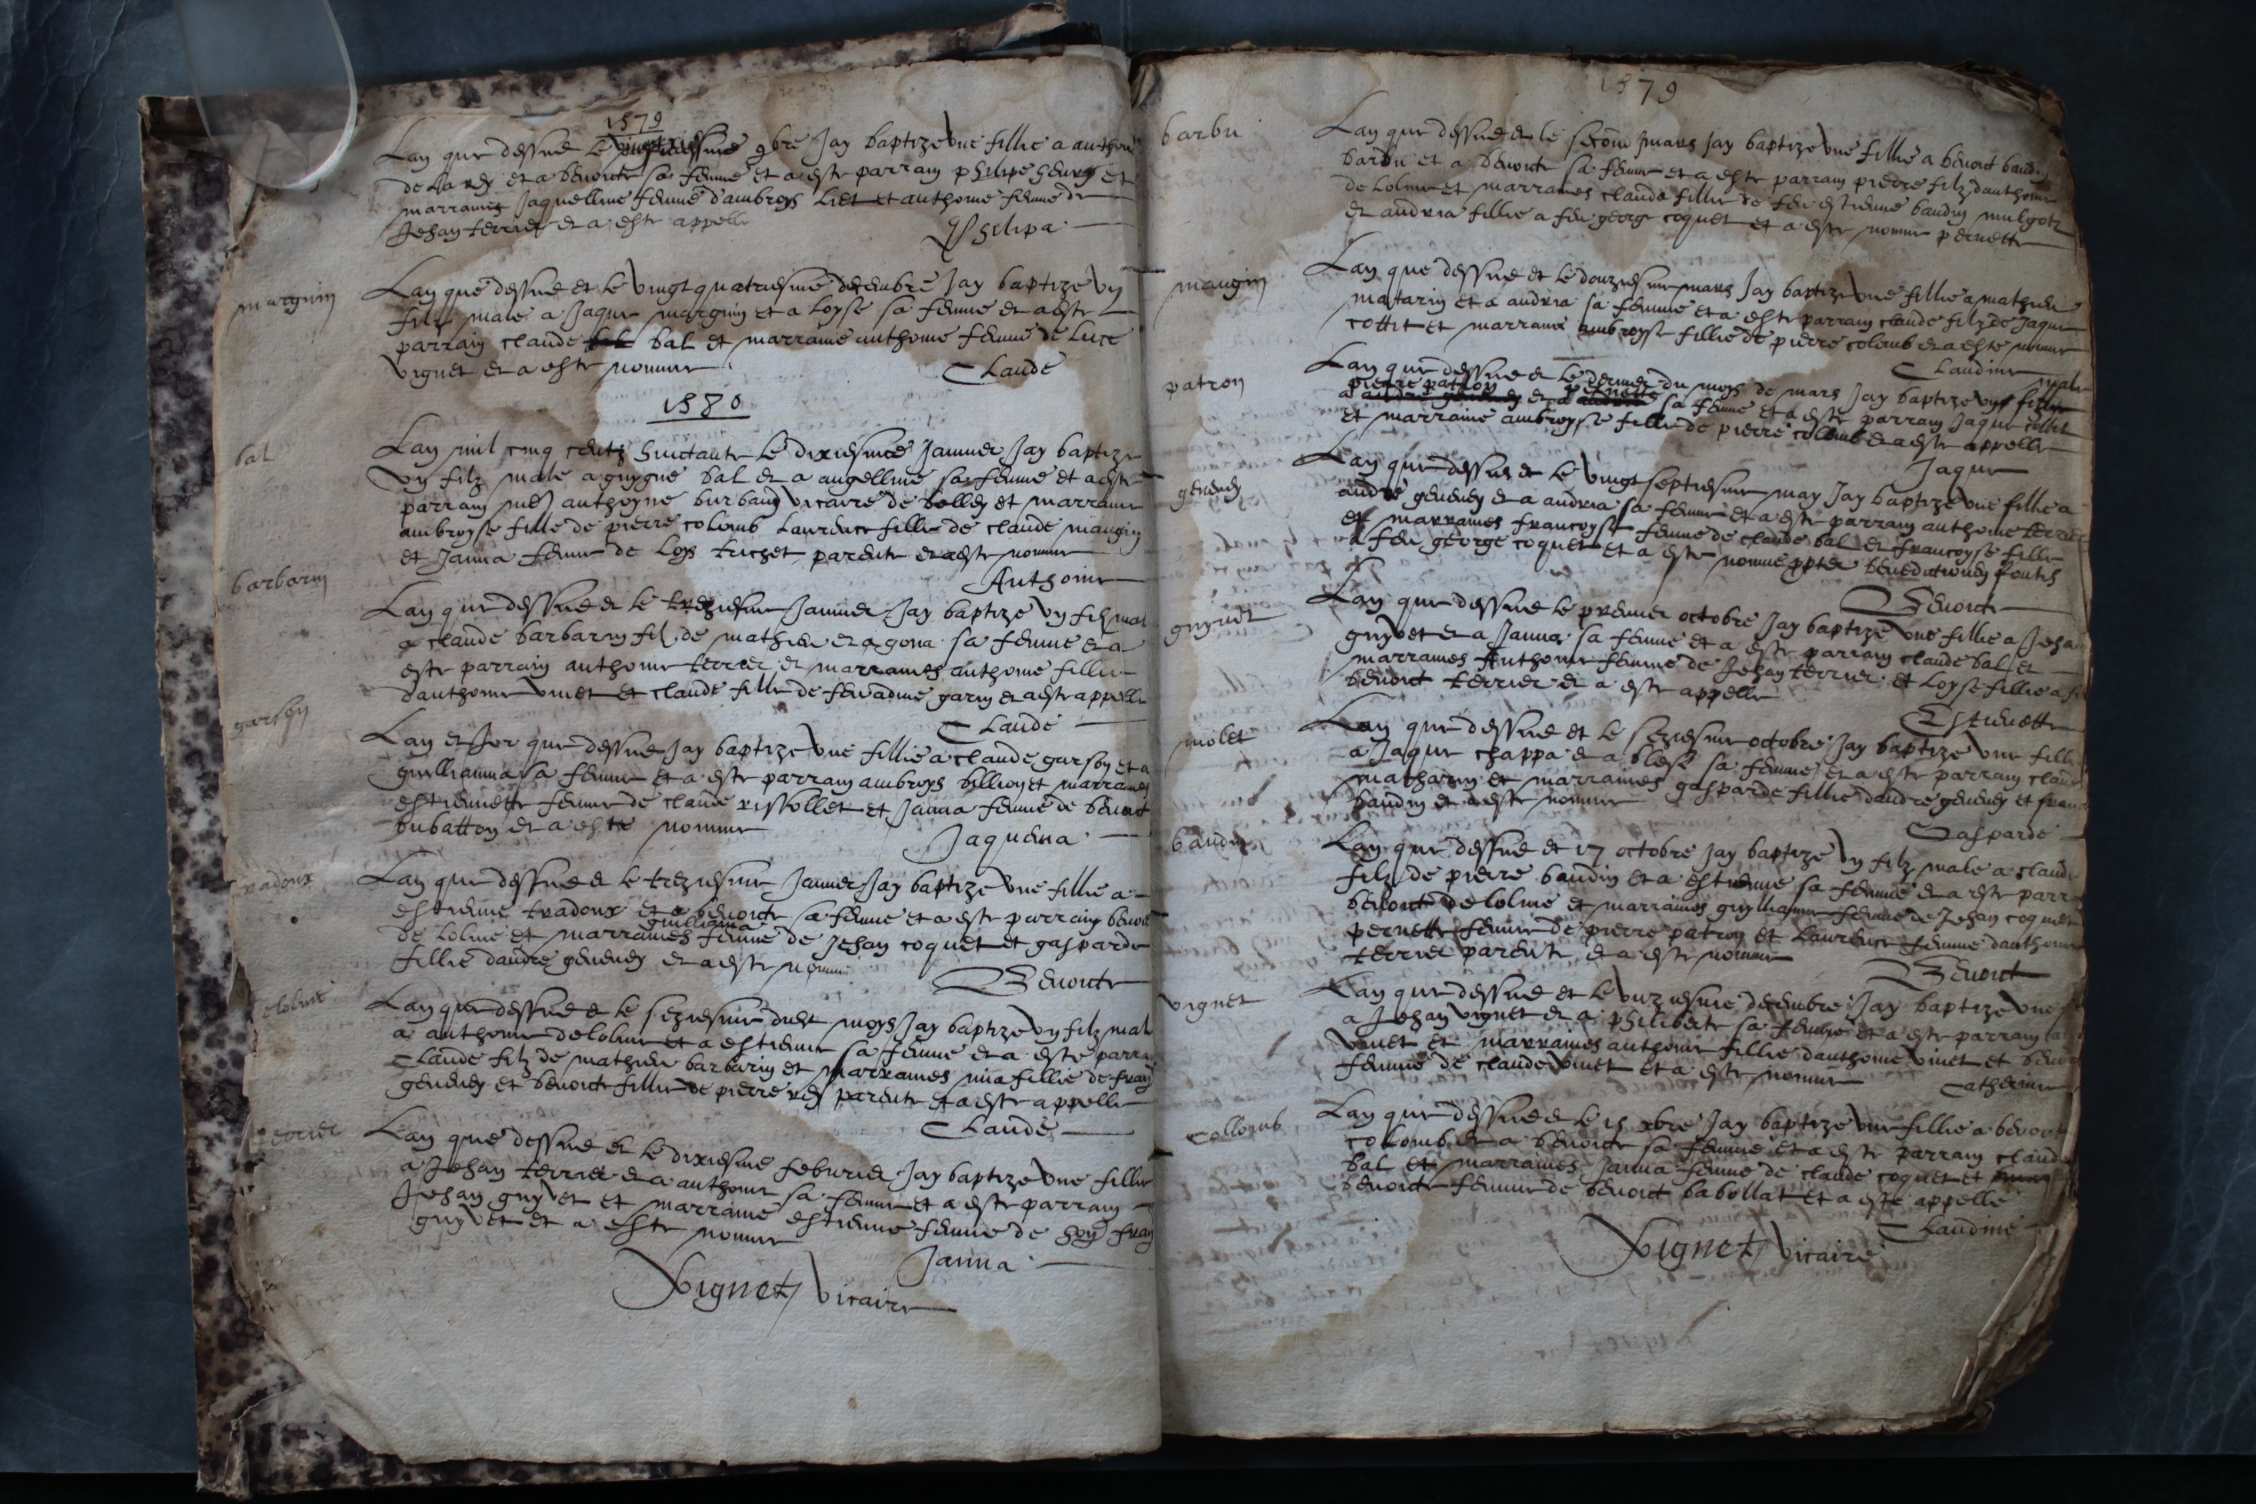 1579
Lan que dessus le 9bre Jay baptize une fillie a anthoine
et a benoicte sa femme et a este parrain philipe et
marraines Jaquelline femme dambroys et anthoine femme de
Jehan terrier et a este appelle
Philipa
marguin
Lan que dessus et le vingt quatriesme decembre Jay baptize vn
filz male a Jaque marguin et a Loyse sa femme et a este
parrain claude bal et marraine anthoine femme de Luce
vignet et a este nomme
Claude
1580
bal
Lan mil cinq centz huictante le dixiesme Januier Jay baptize
vn filz male a guygue bal et a angelline sa femme et a este
parrain mes anthoyne burband vicaire de belley et marraine
ambroyse fille de pierre colomb Laurence fillie de claude maugin
et Janna femme de Loys trichet parente et a este nomme
Anthoine
barbarin
Lan que dessus et le treziesme Januier Jay baptize vn filz mal
a claude barbarin filz de mathieu et a gona sa femme et a
este parrain anthoine terrier et marraines anthoine fillie
danthoine vinet et claude fille de feu adme garin et a este appelle
Claude
garson
Lan et Jor que dessus Jay baptize vne fillie a claude garson et a
guillianna sa femme et a este parrain ambroys billion et marraines
estiennette femme de claude rissollet et Janna femme de benoit
bubatton et a este nomme
Jaquema
radoux
Lan que dessus et le treziesme Januier Jay baptize vne fillie a
estienne tradoux et a benoicte sa femme et a este parrain benoit
guilliama
de lolme et marraines femme de Jehan coquet et gasparde
fillie dandre geneney et a este nomme
Benoicte
elolme
Lan que dessus et le seziesme dict moys Jay baptize vn filz mal
a anthoine delolme et a estienne sa femme et a este parrain
Claude filz de mathieu barbarin et marraines mia fillie de fran
geneney et benoicte fillie de pierre rey parente et a este appelle
Claude
errier
Lan que dessus et le dixiesme feburier Jay baptize vne fillie
a Jehan terrier et a anthoine sa femme et a este parrain
Jehan guyuet et marraine estienne femme de hon fran
guyuet et a este nomme
Janna
Vignet vicaire
1579
barbu
Lan que dessus et le secon mars Jay baptize vne fillie a benoict baudin
barbu et a benoicte sa femme et a este parrain pierre filz danthoine
de Lolme et marraines claude fillie de feu estienne baudin mulgotz
et andria fillie a feu george coquet et a este nomme pernette
maugin
Lan que dessus et le douziesme mars Jay baptize vne fillie a mathieu
matarin et a andria sa femme et a este parrain claude filz de Jaque
cottit et marraine ambroyse fillie de pierre colomb et a este nomme
Claudine
patron
Lan que dessus et le dernier du moys de mars Jay baptize vn filz male
pierre patron pernette
a et a sa femme et a este parrain Jaque cottit
et marraine ambroyse fillie de pierre collomb et a este appelle
Jaque
geneney
Lan que dessus et le vingt septiesme may Jay baptize vne fillie a
andre geneney et a andria sa femme et a este parrain anthoine terrier
et marraines francoyse femme de claude bal et francoyse fillie
a feu george coquet et a este nomme ppter benedictionem fontis
Benoicte
guyuet
Lan que dessus le premier octobre Jay baptize vne fillie a Jehan
guyuet et a Janna sa femme et a este parrain claude bal et
marraines Anthoine femme de Jehan terrier et Loyse fillie a
benoict terrier et a este appelle
Estienette
molet
Lan que dessus et le seziesme octobre Jay baptize vne fillie
a Jaque chappa et a blese sa femme et a este parrain claude
matharin et marraines gasparde fillie dandre geneney et fran
baudin et a este nomme
Gasparde
baudin
Lan que dessus et 17 octobre Jay baptize vn filz male a claude
filz de pierre baudin et a estienne sa femme et a este parrain
benoict de lolme et marraines guillianne femme de Jehan coquet
pernette femme de pierre patron et Laurence femme danthoine
terrier parente et a este nomme
Benoict
vignet
Lan que dessus et le unziesme decembre Jay baptize vne
a Jehan vignet et a philiberte sa femme et a este parrain
vinet et marraines anthoine fillie danthoine vinet et benoi
femme de claude vinet et a este nomme
Catherine
Collomb
Lan que dessus et le 15 xbre Jay baptize vne fillie a benoict
colomb et a benoicte sa femme et a este parrain claude
bal et marraines Janna femme de claude coquet et
benoicte femme de benoict babollat et a este appelle
Claudine
Vignet vicaire